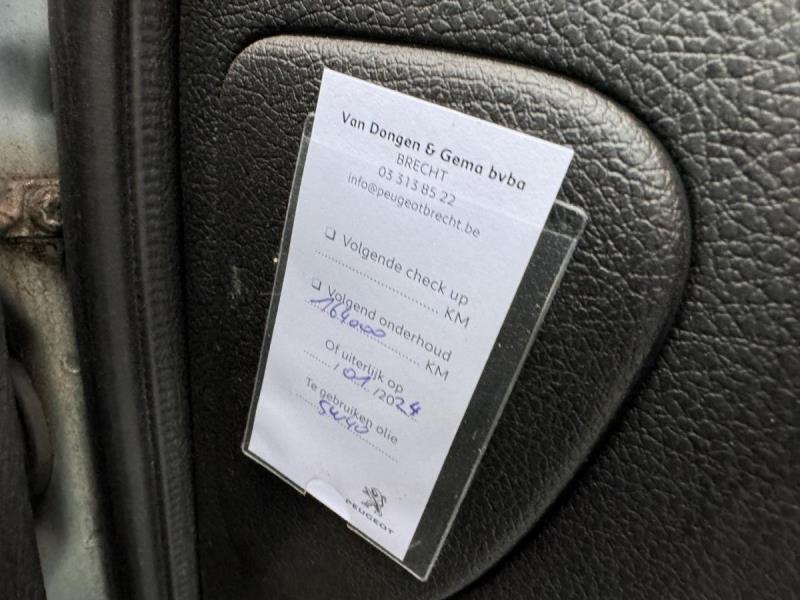 Van Dongen & Gema bvba
BRECHT
03 313 85 22
info@peugeotbrecht.be
❏ Volgende check up
........................... KM
❏ Volgend onderhoud
164000 ........ KM
Of uiterlijk op
......../ 01 /2024
Te gebruiken olie
5W40
PEUGEOT